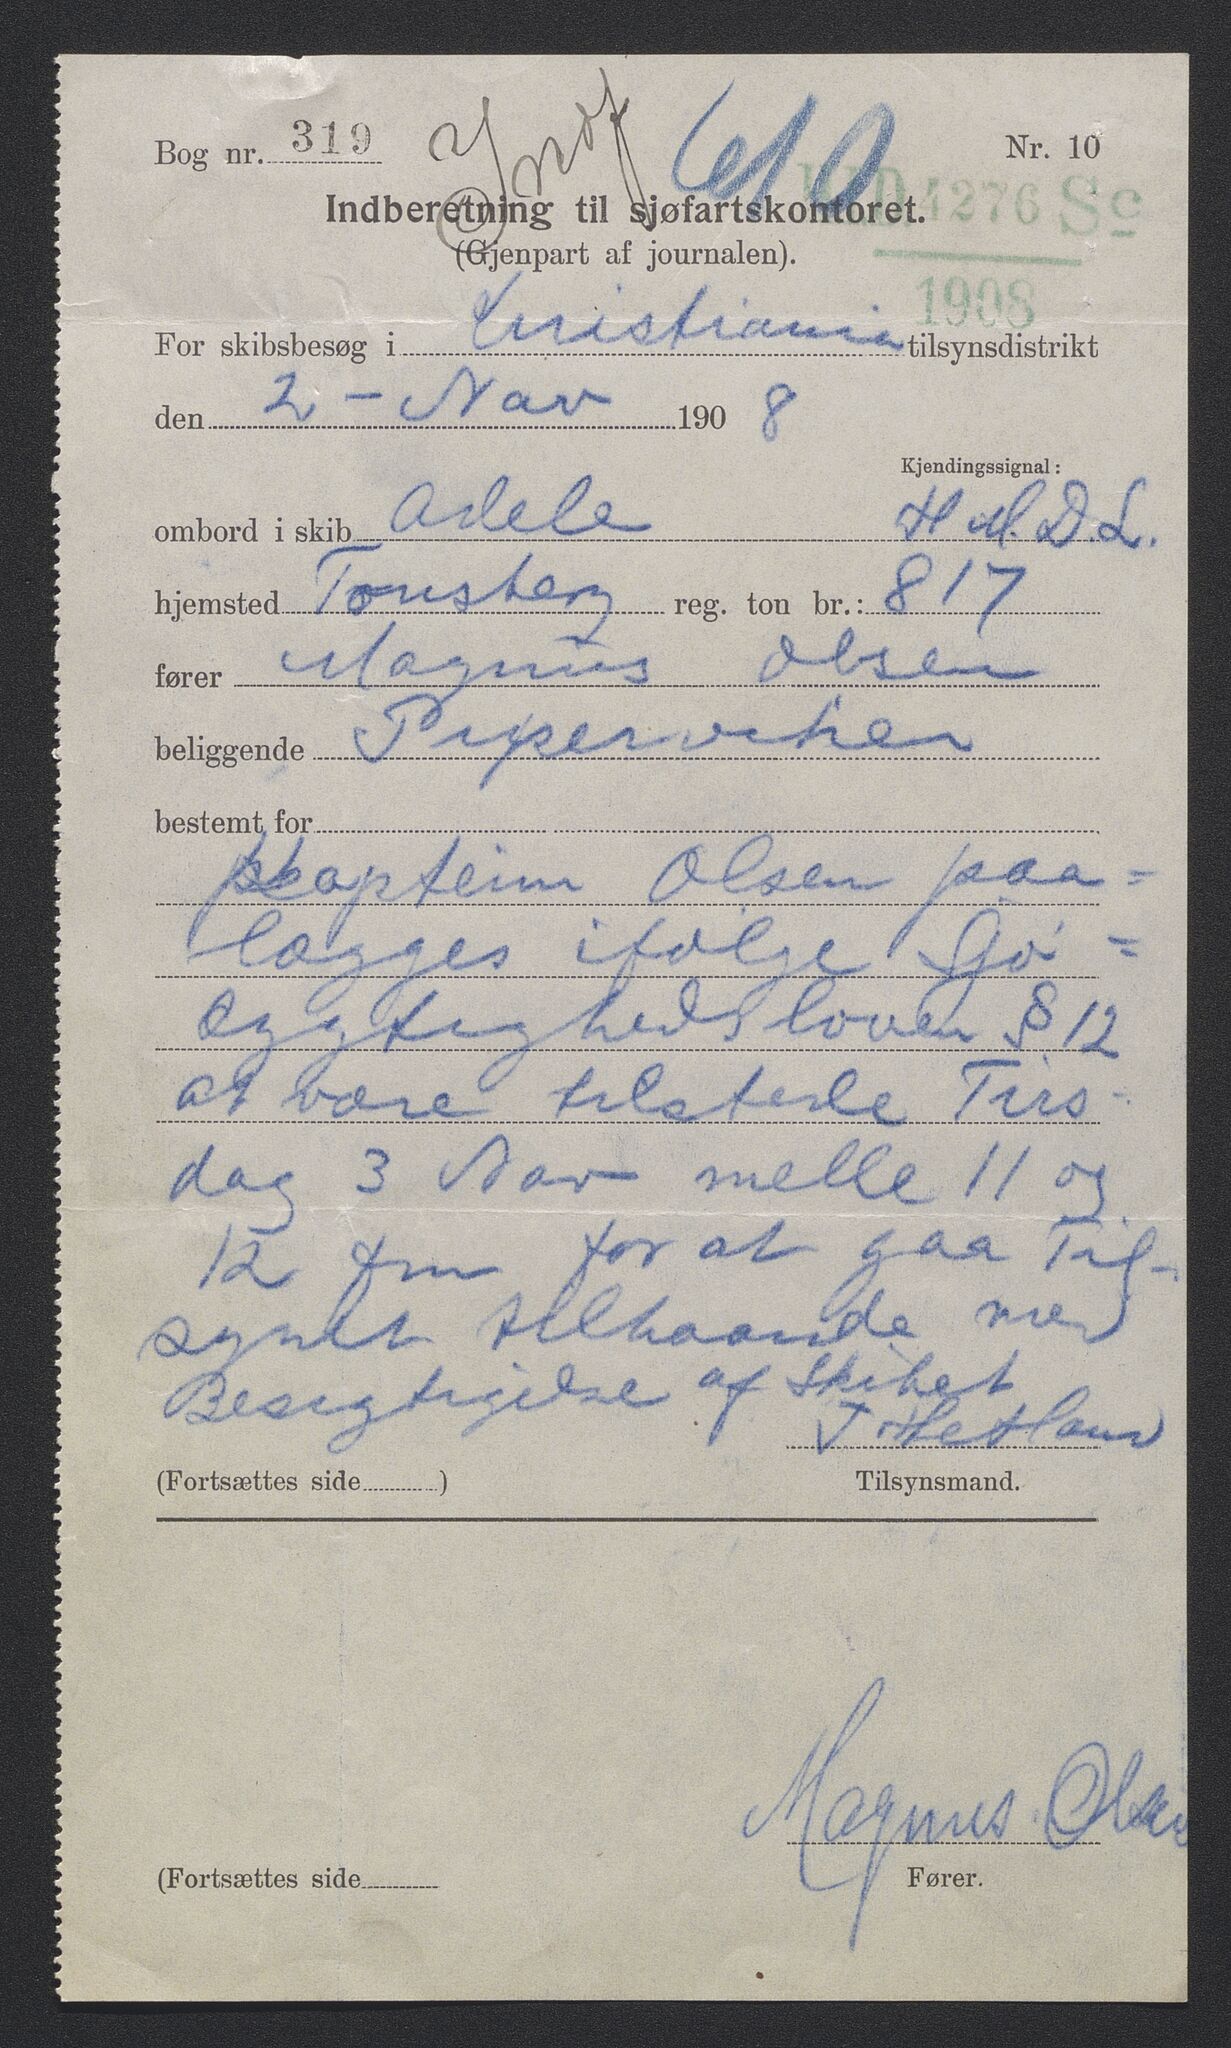 Bog nr. 319
Nr. 10
4276 Sc
1908
Indberetning til sjøfartskontoret.
(Gjenpart af journalen).
For skibsbesøg i Kristiania tilsynsdistrikt
den 2 - Nov 1908
Kjendingssignal:
ombord i skib Adele H.M.D.L.
hjemsted Tønsberg reg. ton br.: 817
fører Magnus Olsen
beliggende Pipervi​ken
bestemt for
Kaptein Olsen paa=
lægges ifølge Sjø=
dygtighedsloven § 12
at være tilstede Tirs-
dag 3 Nov melle 11 og
12 fm for at gaa Til-
synet tilhaande med
Besigtigelse af Skibet
T Hetland
(Fortsættes side )
Tilsynsmand.
Magnus Olsen
(Fortsættes side
Fører.